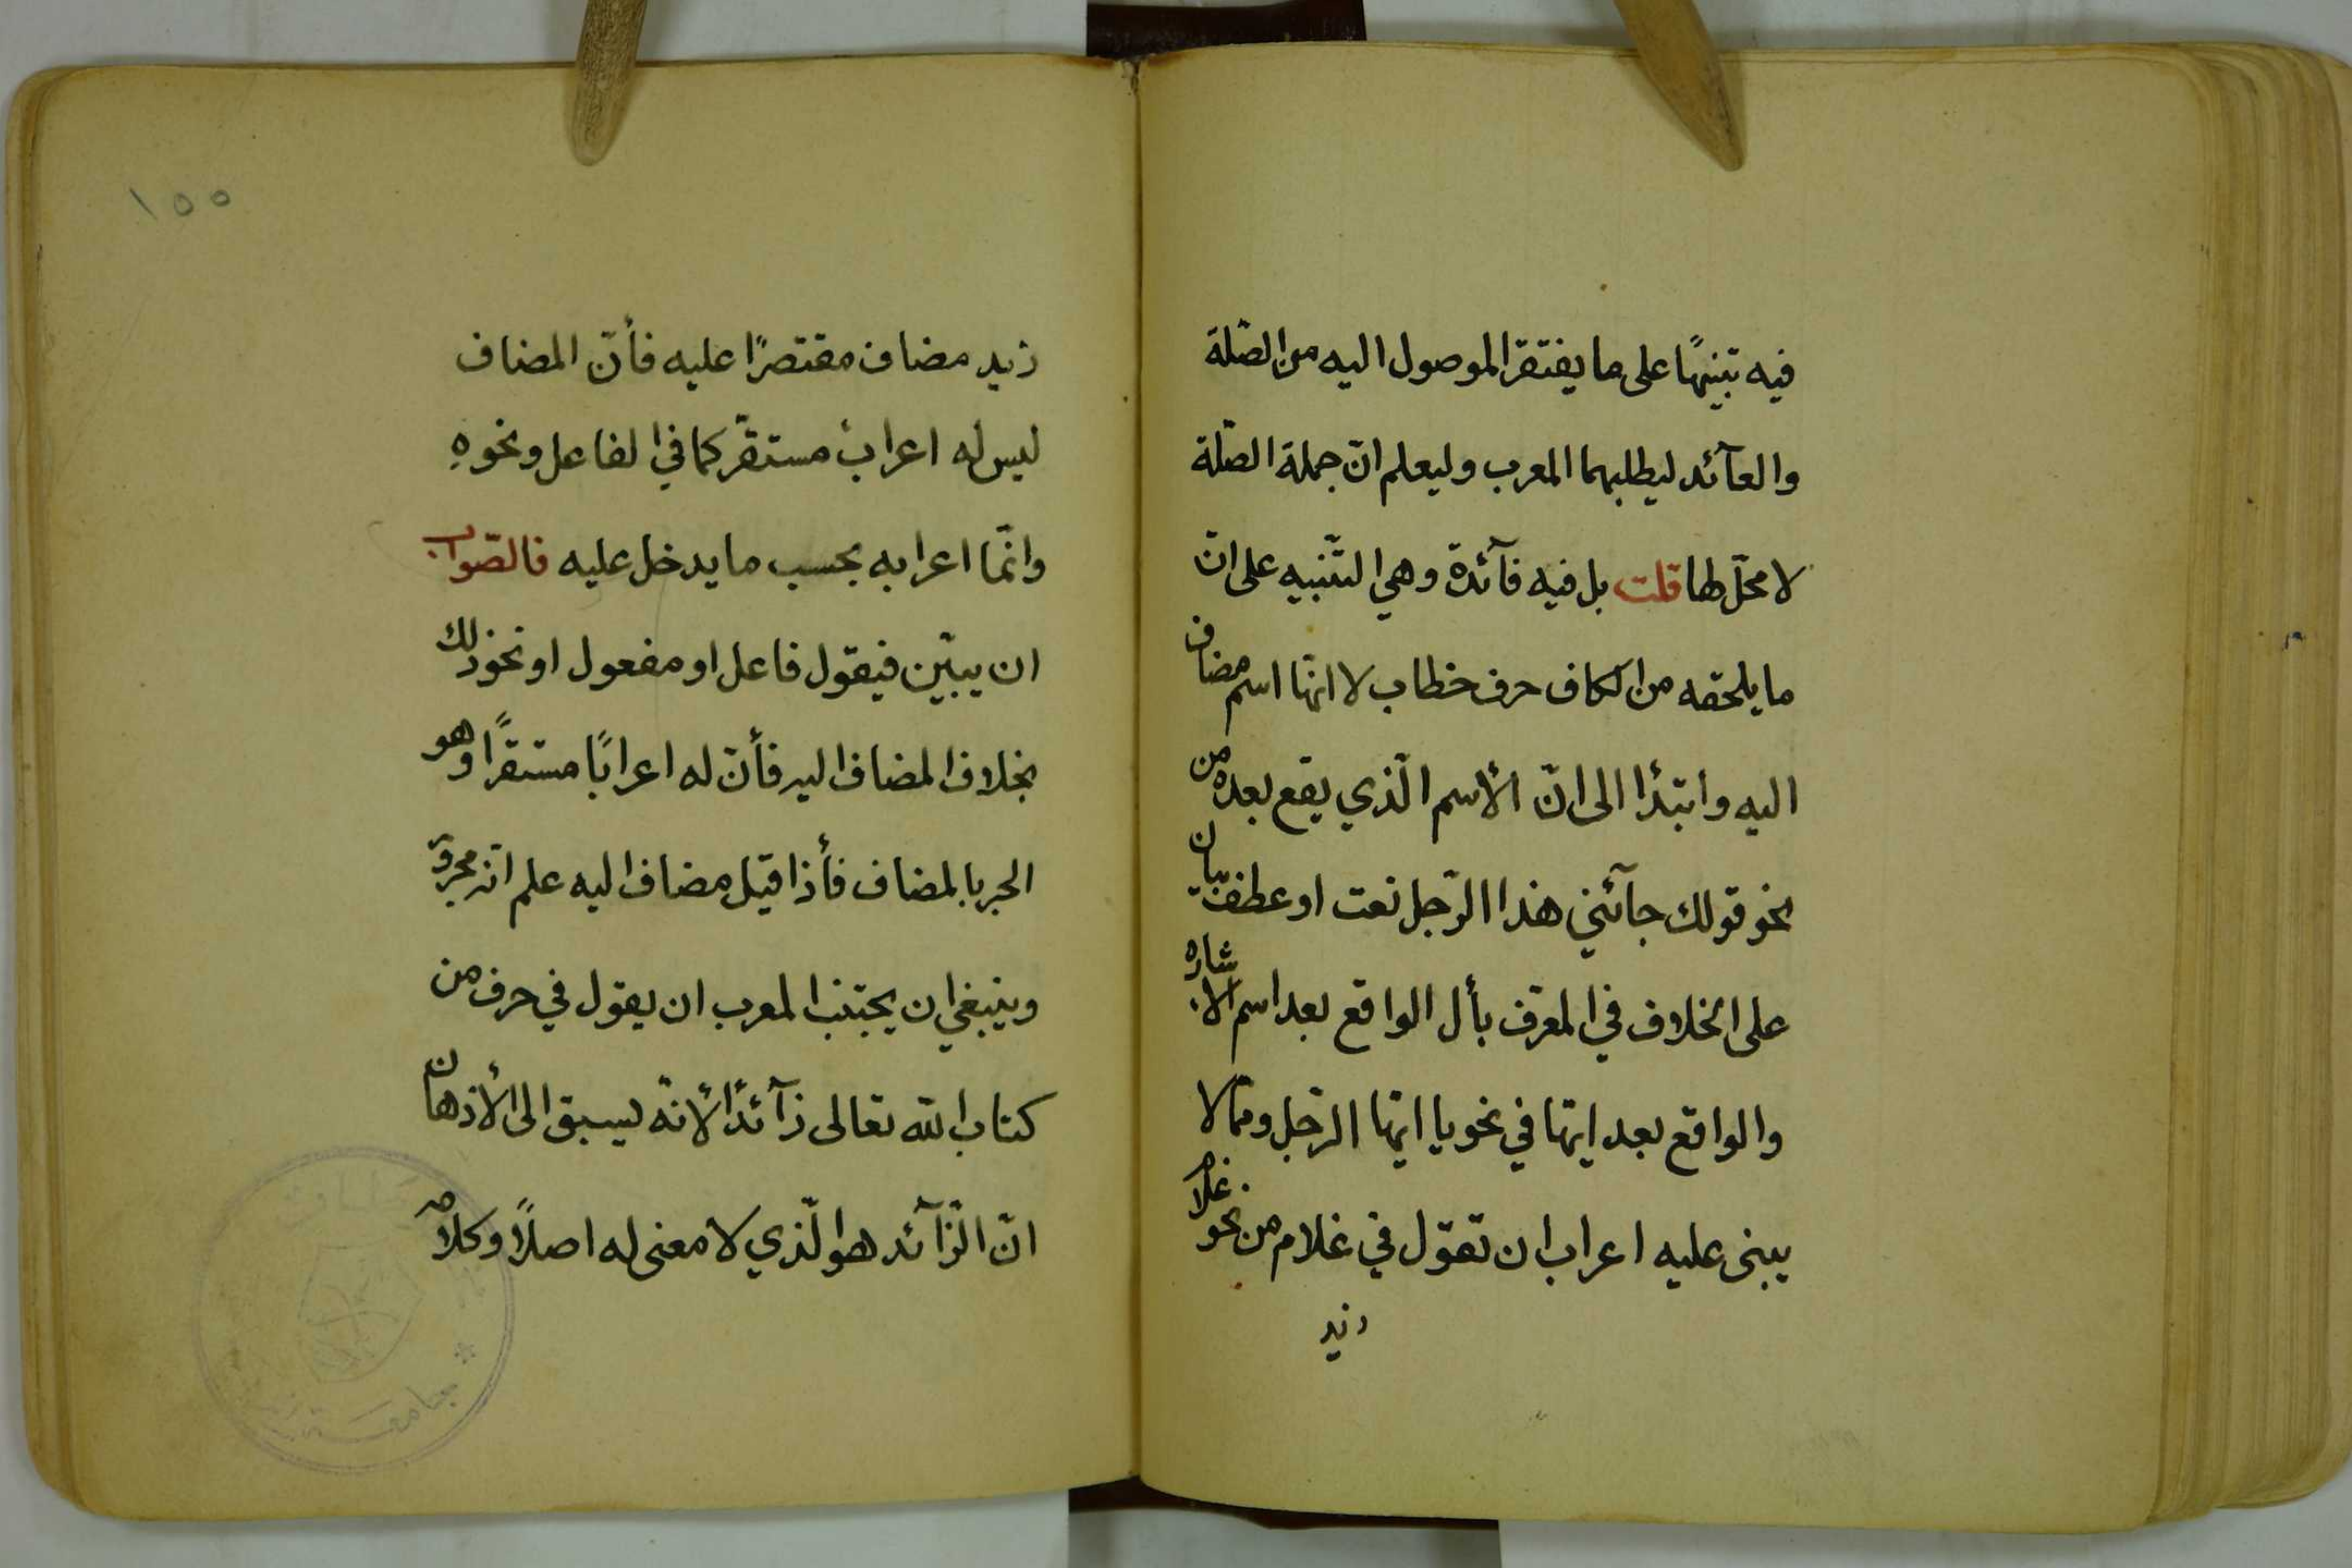 فيه تبنيهًا على ما يفتقر الموصول اليه من الصّلة
والعآئد ليطلبهما المعرب وليعلم انّ جملة الصّلة
لا محلّ لها قلت بل فيه فآئدة وهي التّنبيه على انّ
ما يلحقه من الكاف حرف خطاب لا انّها اسم مضاف
اليه وابتدأ الى انّ الأسم الّذي يقع بعده من
نحو قولك جآئني هذا الرّجل نعت او عطف بيان
على الخلاف في المعرّف بأل الواقع بعد اسم الاشاره
والواقع بعد ايّها في نحو يا ايّها الرّجل وممّا لا
يبنى عليه اعراب ان تقول في غلام من نحو غلام
زيد
١٥٥
زيد مضاف مقتصرًا عليه فأنّ المضاف
ليس له اعراب مستقرّ كما في الفاعل ونحوه
وانّما اعرابه بحسب ما يدخل عليه فالصّواب
ان يبيّن فيقول فاعل او مفعول او نحو ذلك
بخلاف المضاف اليه فأنّ له اعرابًا مستقرًّا وهو
الجر بالمضاف فأذا قيل مضاف اليه علم انّه مجرور
وينبغي ان يجتنب المعرب ان يقول في حرف من
كتاب الله تعالى زآئدًا لأنّه يسبق الى الأذهان
انّ الزّآئد هو الّذي لا معنى له اصلًا وكلام
جامعة